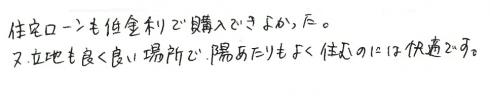 住宅ローンも低金利で購入できよかった。
又、立地も良く良い場所で、陽あたりもよく住むのには快適です。